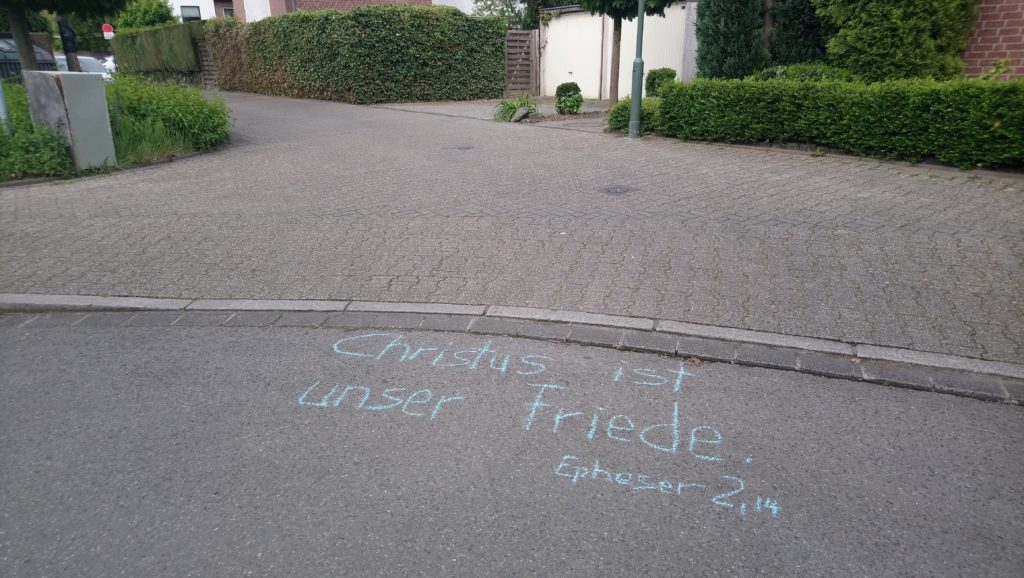 Christus ist
unser Friede.
Epheser 2,14